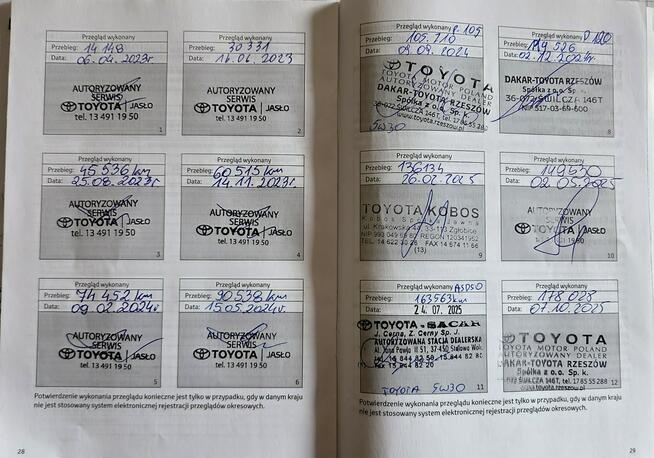 Przegląd wykonany
Przebieg: 14 148
Data: 06.04.2023r
AUTORYZOWANY
SERWIS
TOYOTA JASŁO
tel. 13 491 19 50
1
Przegląd wykonany
Przebieg: 30 331
Data: 16.06.2023
AUTORYZOWANY
SERWIS
TOYOTA JASŁO
tel. 13 491 19 50
2
Przegląd wykonany
Przebieg: 45 536 km
Data: 25.08.2023r
AUTORYZOWANY
SERWIS
TOYOTA JASŁO
tel. 13 491 19 50
3
Przegląd wykonany
Przebieg: 60 515 km
Data: 14.11.2023r.
AUTORYZOWANY
SERWIS
TOYOTA JASŁO
tel. 13 491 19 50
4
Przegląd wykonany
Przebieg: 74 452 km
Data: 09.02.2024r
AUTORYZOWANY
SERWIS
TOYOTA JASŁO
tel. 13 491 19 50
5
Przegląd wykonany
Przebieg: 90 538 km
Data: 15.05.2024r.
AUTORYZOWANY
SERWIS
TOYOTA JASŁO
tel. 13 491 19 50
6
Potwierdzenie wykonania przeglądu konieczne jest tylko w przypadku, gdy w danym kraju
nie jest stosowany system elektronicznej rejestracji przeglądów okresowych.
28
Przegląd wykonany P. 105
Przebieg:
Data: 09.2024
TOYOTA
TOYOTA MOTOR POLAND
AUTORYZOWANY DEALER
DAKAR-TOYOTA RZESZÓW
Spółka z o.o. Sp. k.
36-072 ŚWILCZA 146T, tel. 17 85 55 288
www.toyota.rzeszow.pl
5W30
Przegląd wykonany P 120
Przebieg: 119 526
Data: 02.12.2024r
DAKAR-TOYOTA RZESZÓW
Spółka z o.o. Sp. k.
36-072 ŚWILCZA 146T
NIP 517-03-69-600
8
Przegląd wykonany
Przebieg: 136134
Data: 26.02.2025
TOYOTA KOBOS
Kobos Spółka Jawna
ul. Krakowska 33-113 Zgłobice
REGON 120341962
TEL. 14 622 FAX 14 674 11 66
(13)
9
Przegląd wykonany
Przebieg:
Data: 02.05.2025
AUTORYZOWANY
SERWIS
TOYOTA JASŁO
10
Przegląd wykonany ASDSO
Przebieg: 163563km
Data: 24. 07. 2025
TOYOTA - SACAR
J. Cerna, Z. Cerny Sp. J.
AUTORYZOWANA STACJA DEALERSKA
Al. Jana Pawła II 51, 37-450 Stalowa Wola
tel. 15 844 82 50, 15 844 82 80
Fax 15 844 82 20
TOYOTA 5W30
11
Przegląd wykonany
Przebieg: 178 028
Data: 07.10.2025
TOYOTA
TOYOTA MOTOR POLAND
AUTORYZOWANY DEALER
DAKAR-TOYOTA RZESZÓW
Spółka z o.o. Sp. k.
36-072 ŚWILCZA 146T, tel. 17 85 55 288
www.toyota.rzeszow.pl
12
Potwierdzenie wykonania przeglądu konieczne jest tylko w przypadku, gdy w danym kraju
nie jest stosowany system elektronicznej rejestracji przeglądów okresowych.
29